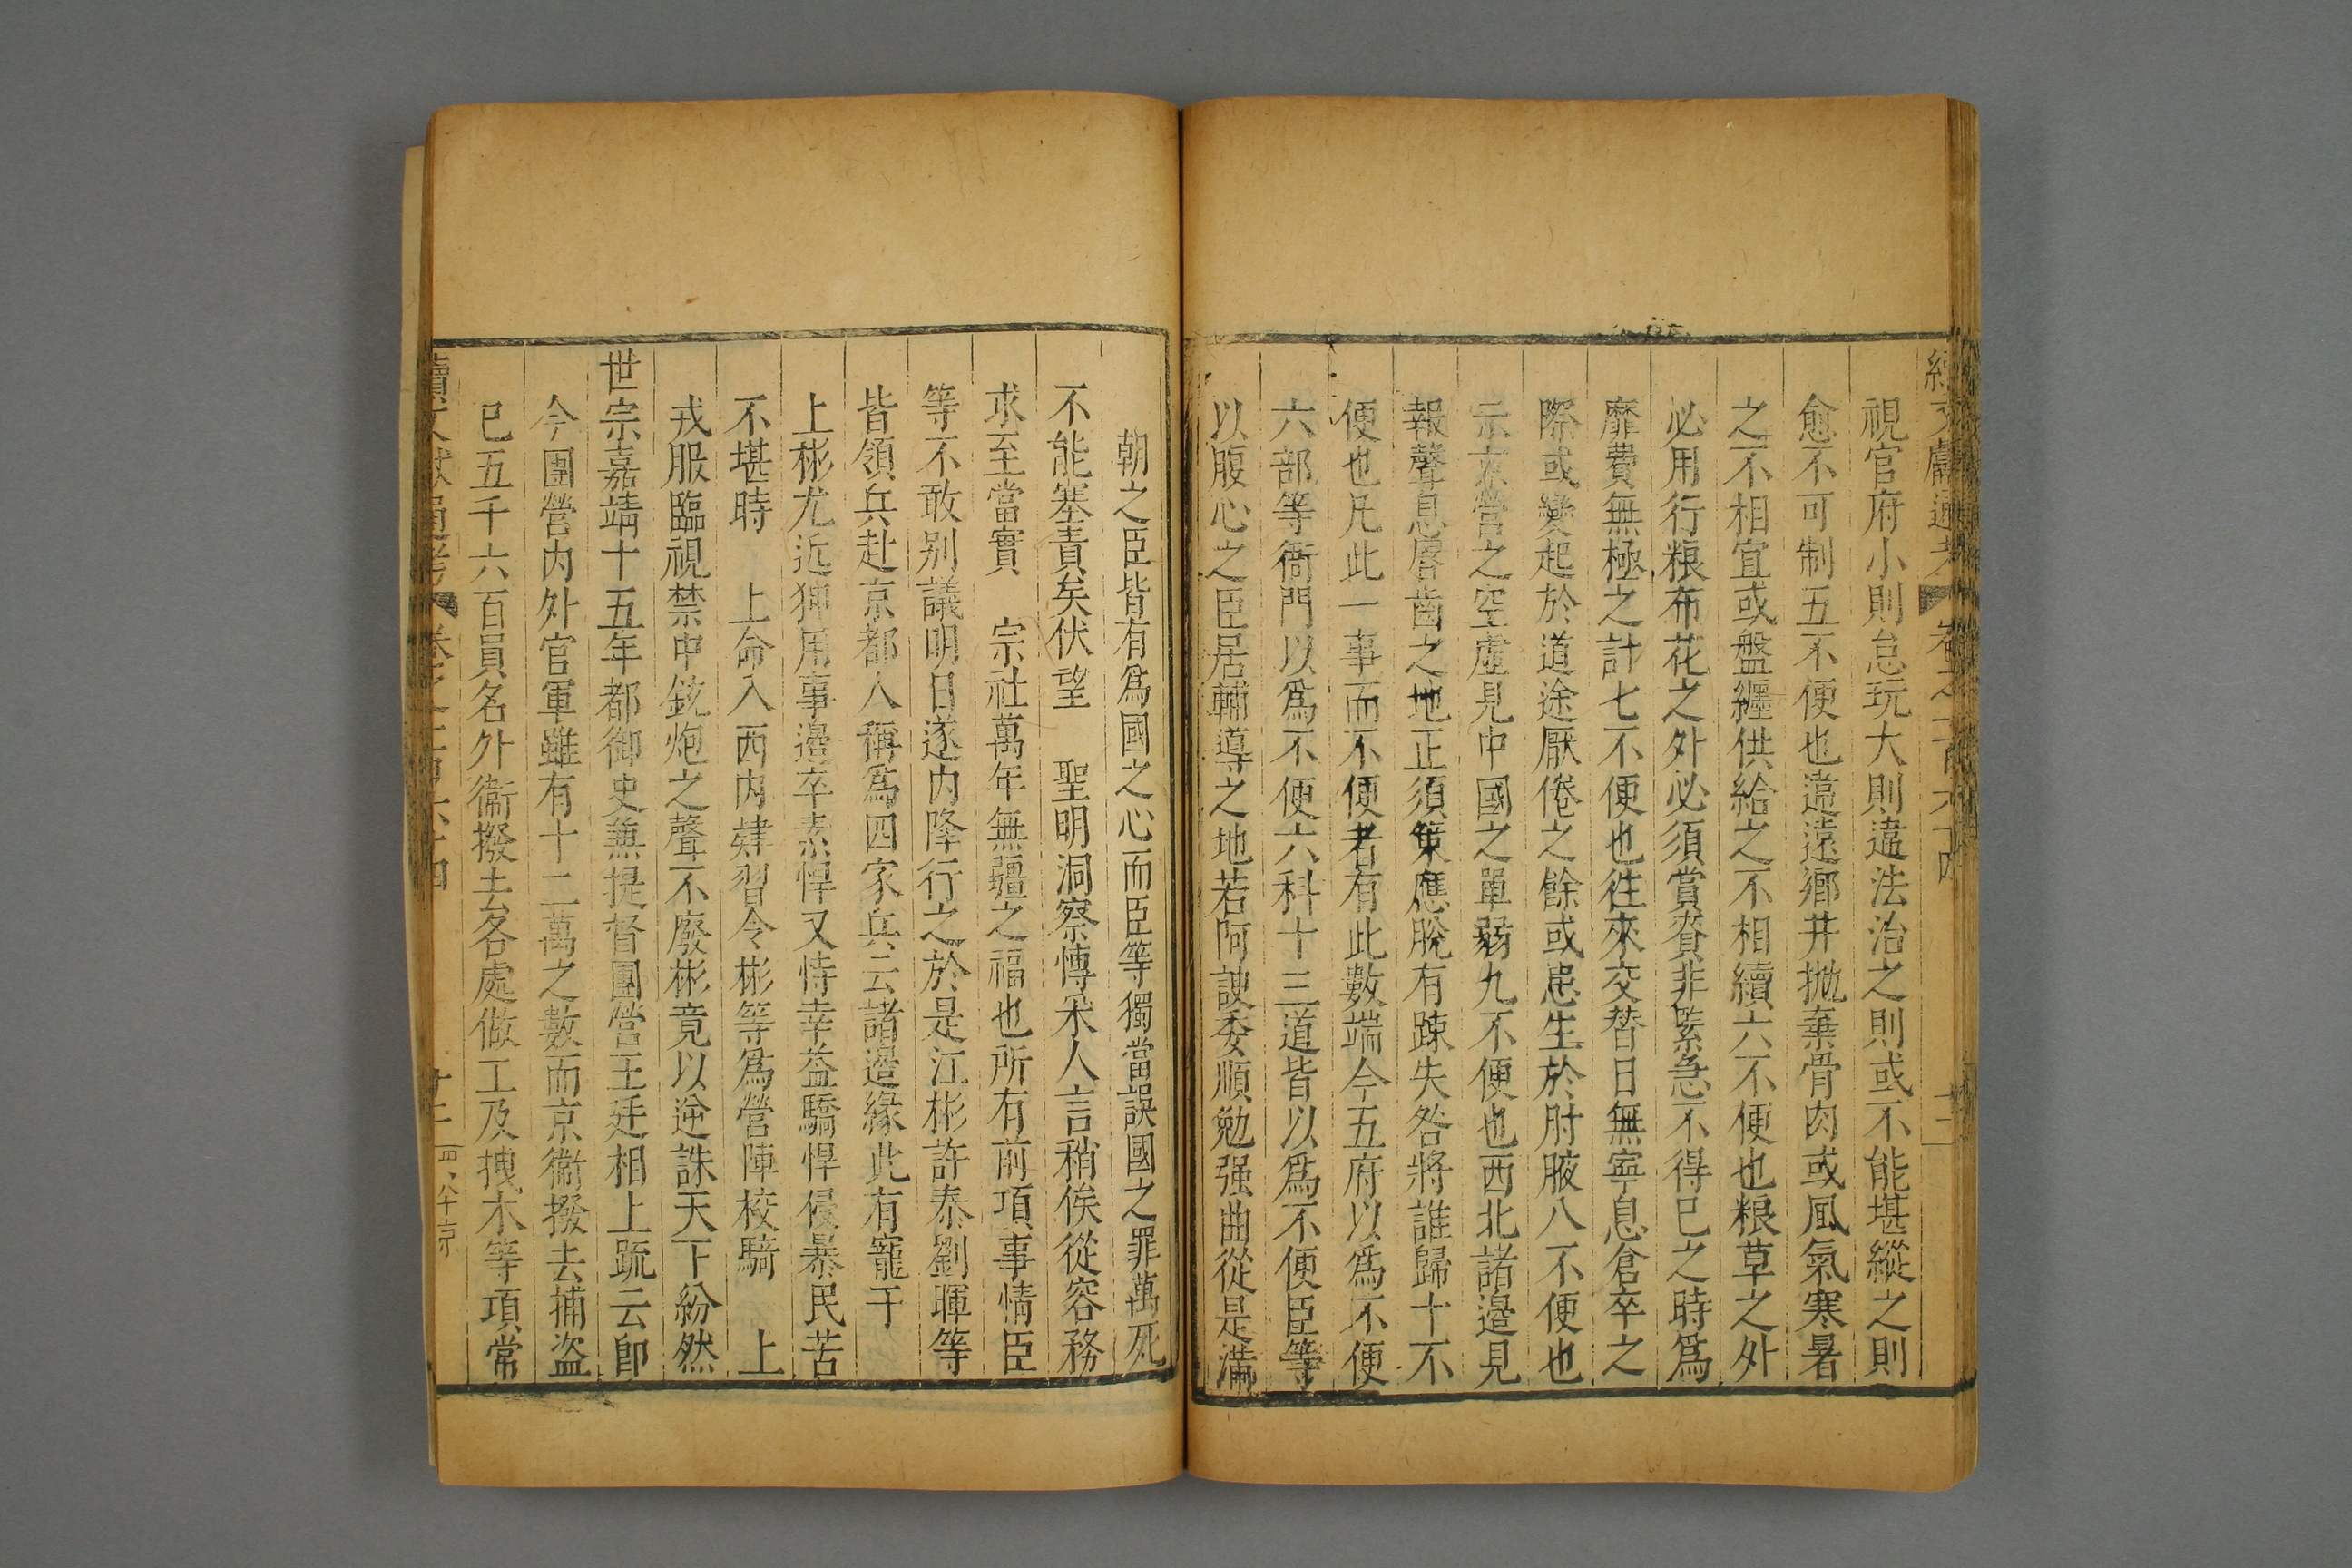 續文獻通考 卷之一百六十四
視官府小則怠玩大則違法治之則或不能堪縱之則
愈不可制五不便也遠違鄉井拋棄骨肉或風氣寒暑
之不相宜或盤纏供給之不相續六不便也粮草之外
必用行粮布花之外必須賞賚非緊急不得已之時爲
靡費無極之計七不便也徃來交替日無寧息倉卒之
際或變起於道途厭倦之餘或患生於肘腋八不便也
示京營之空虛見中國之單弱九不便也西北諸邊見
報聲息唇齒之地正須策應脫有踈失咎將誰歸十不
便也凡此一事而不便者有此數端今五府以爲不便
六部等衙門以爲不便六科十三道皆以爲不便臣等
以腹心之臣居輔導之地若阿諛委順勉强曲從是滿
朝之臣皆有爲國之心而臣等獨當誤國之罪萬死
不能塞責矣伏望 聖明洞察慱采人言稍俟從容務
求至當實 宗社萬年無疆之福也所有前項事情臣
等不敢别議明日遂内降行之於是江彬許泰劉暉等
皆領兵赴京都人稱爲四家兵云諸邊緣此有寵于
上彬尤近狎用事邊卒素悍又恃幸益驕悍侵暴民苦
不堪時 上命入西内肄習令彬等爲營陣校騎 上
戎服臨視禁中銃炮之聲不廢彬竟以逆誅天下紛然
世宗嘉靖十五年都御史兼提督團營王廷相上疏云卽
今團營内外官軍雖有十二萬之數而京衞撥去捕盜
已五千六百員名外衞撥去各處做工及拽木等項常
續文獻通考 卷之一百六十四 十二